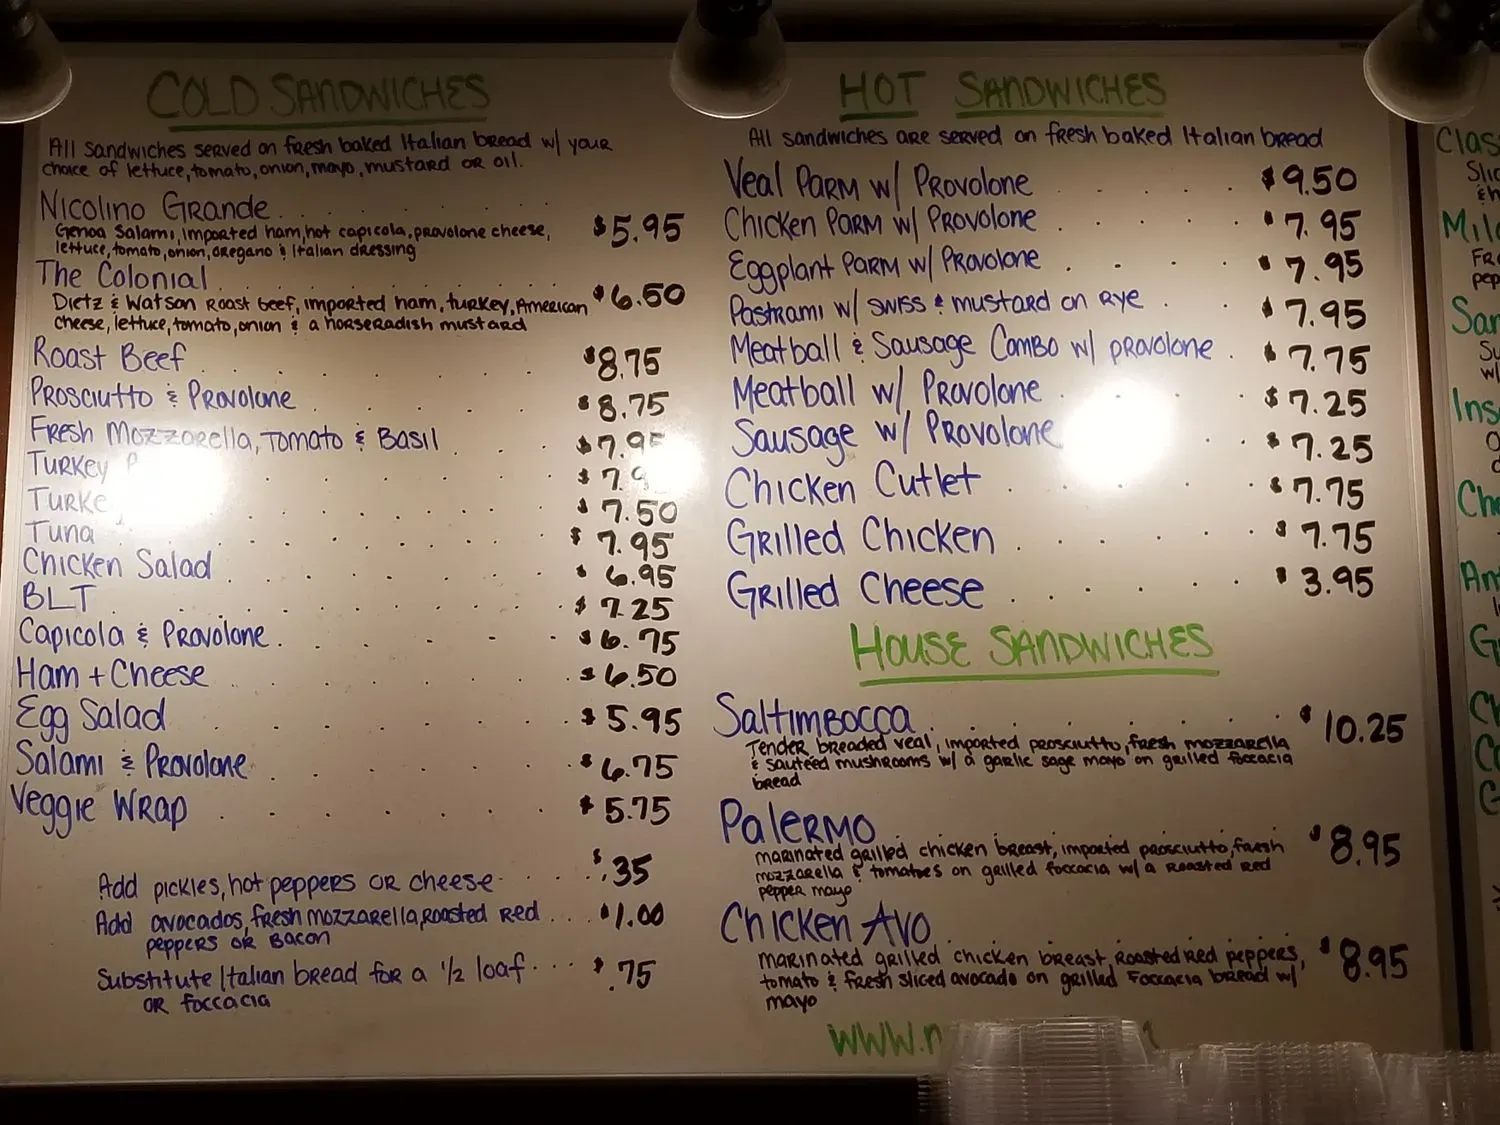 COLD SANDWICHES
All Sandwiches served on fresh baked Italian bread w/ your
choice of lettuce, tomato, onion, mayo, mustard or oil.
Nicolino Grande . . . . . $5.95
Genoa Salami, Imported ham, hot capicola, provolone cheese,
lettuce, tomato, onion, oregano & Italian dressing
The Colonial . . . . . $6.50
Dietz & Watson Roast beef, imported ham, turkey, American
cheese, lettuce, tomato, onion & a horseradish mustard
Roast Beef . . . . . $8.75
Prosciutto & Provolone . . . . . $8.75
Fresh Mozzarella, Tomato & Basil . . . $7.95
Turkey $7.9
Turke $7.50
Tuna . . . . . $7.95
Chicken Salad . . . . . $6.95
BLT . . . . . $7.25
Capicola & Provolone . . . . . $6.75
Ham + Cheese . . . . . $6.50
Egg Salad . . . . . $5.95
Salami & Provolone . . . . . $6.75
Veggie Wrap . . . . . $5.75
Add pickles, hot peppers or cheese . . . $.35
Add avocados, fresh mozzarella, roasted red . . . $1.00
peppers or Bacon
Substitute Italian bread for a 1/2 loaf . . . $.75
or foccacia
HOT SANDWICHES
All sandwiches are served on fresh baked Italian bread
Veal Parm w/ Provolone . . . . $9.50
Chicken Parm w/ Provolone . . . . $7.95
Eggplant Parm w/ Provolone . . . . $7.95
Pastrami w/ swiss & mustard on rye . . $7.95
Meatball & Sausage Combo w/ provolone . $7.75
Meatball w/ Provolone $7.25
Sausage w/ Provolone $7.25
Chicken Cutlet . . . . $7.75
Grilled Chicken . . . . . $7.75
Grilled Cheese . . . . . $3.95
HOUSE SANDWICHES
Saltimbocca . . . . . $10.25
Tender breaded veal, imported prosciutto, fresh mozzarella
& sauteed mushrooms w/ a garlic sage mayo on grilled foccacia
bread
Palermo . . . . . $8.95
marinated grilled chicken breast, imported prosciutto, fresh
mozzarella & tomatoes on grilled foccacia w/ a roasted red
pepper mayo
Chicken Avo . . . . . $8.95
marinated grilled chicken breast, roasted red peppers,
tomato & fresh sliced avocado on grilled foccacia bread w/
mayo
www.n